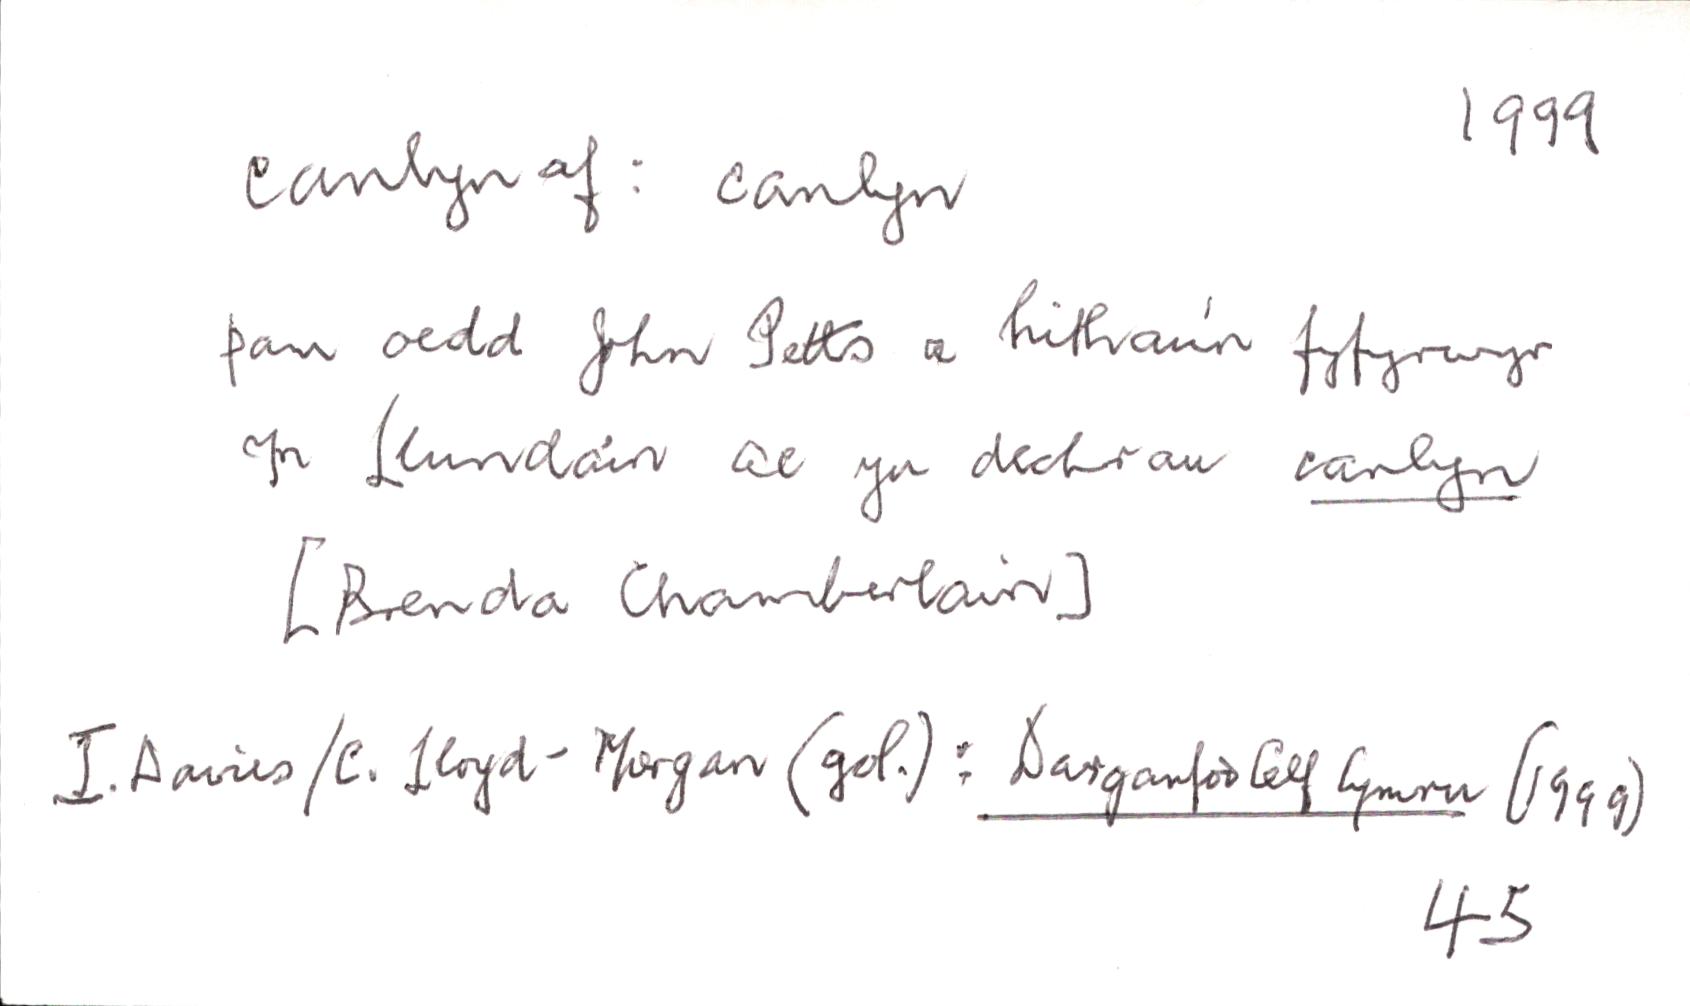 1999
canlynaf: canlyn
pan oedd John Petts a hithau'n fyfyrwyr
yn Llundain ac yn dechrau canlyn
[Brenda Chamberlain]
I. Davies/C. Lloyd-Morgan (gol.): Darganfod Celf Cymru (1999)
45